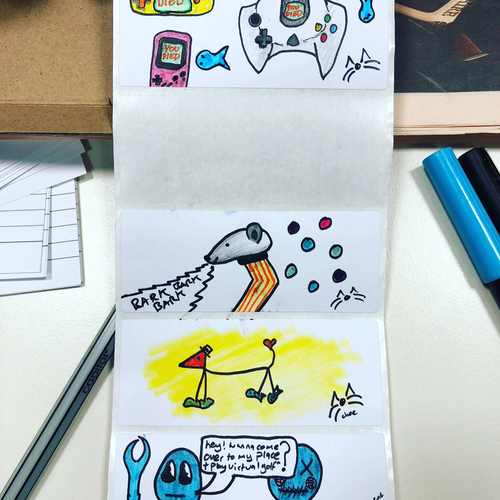 DIED
YOU
DIED
YOU
DIED
RARK BARK
BARK
chee
hey! wanna come
over to my place
+ play virtual golf
?